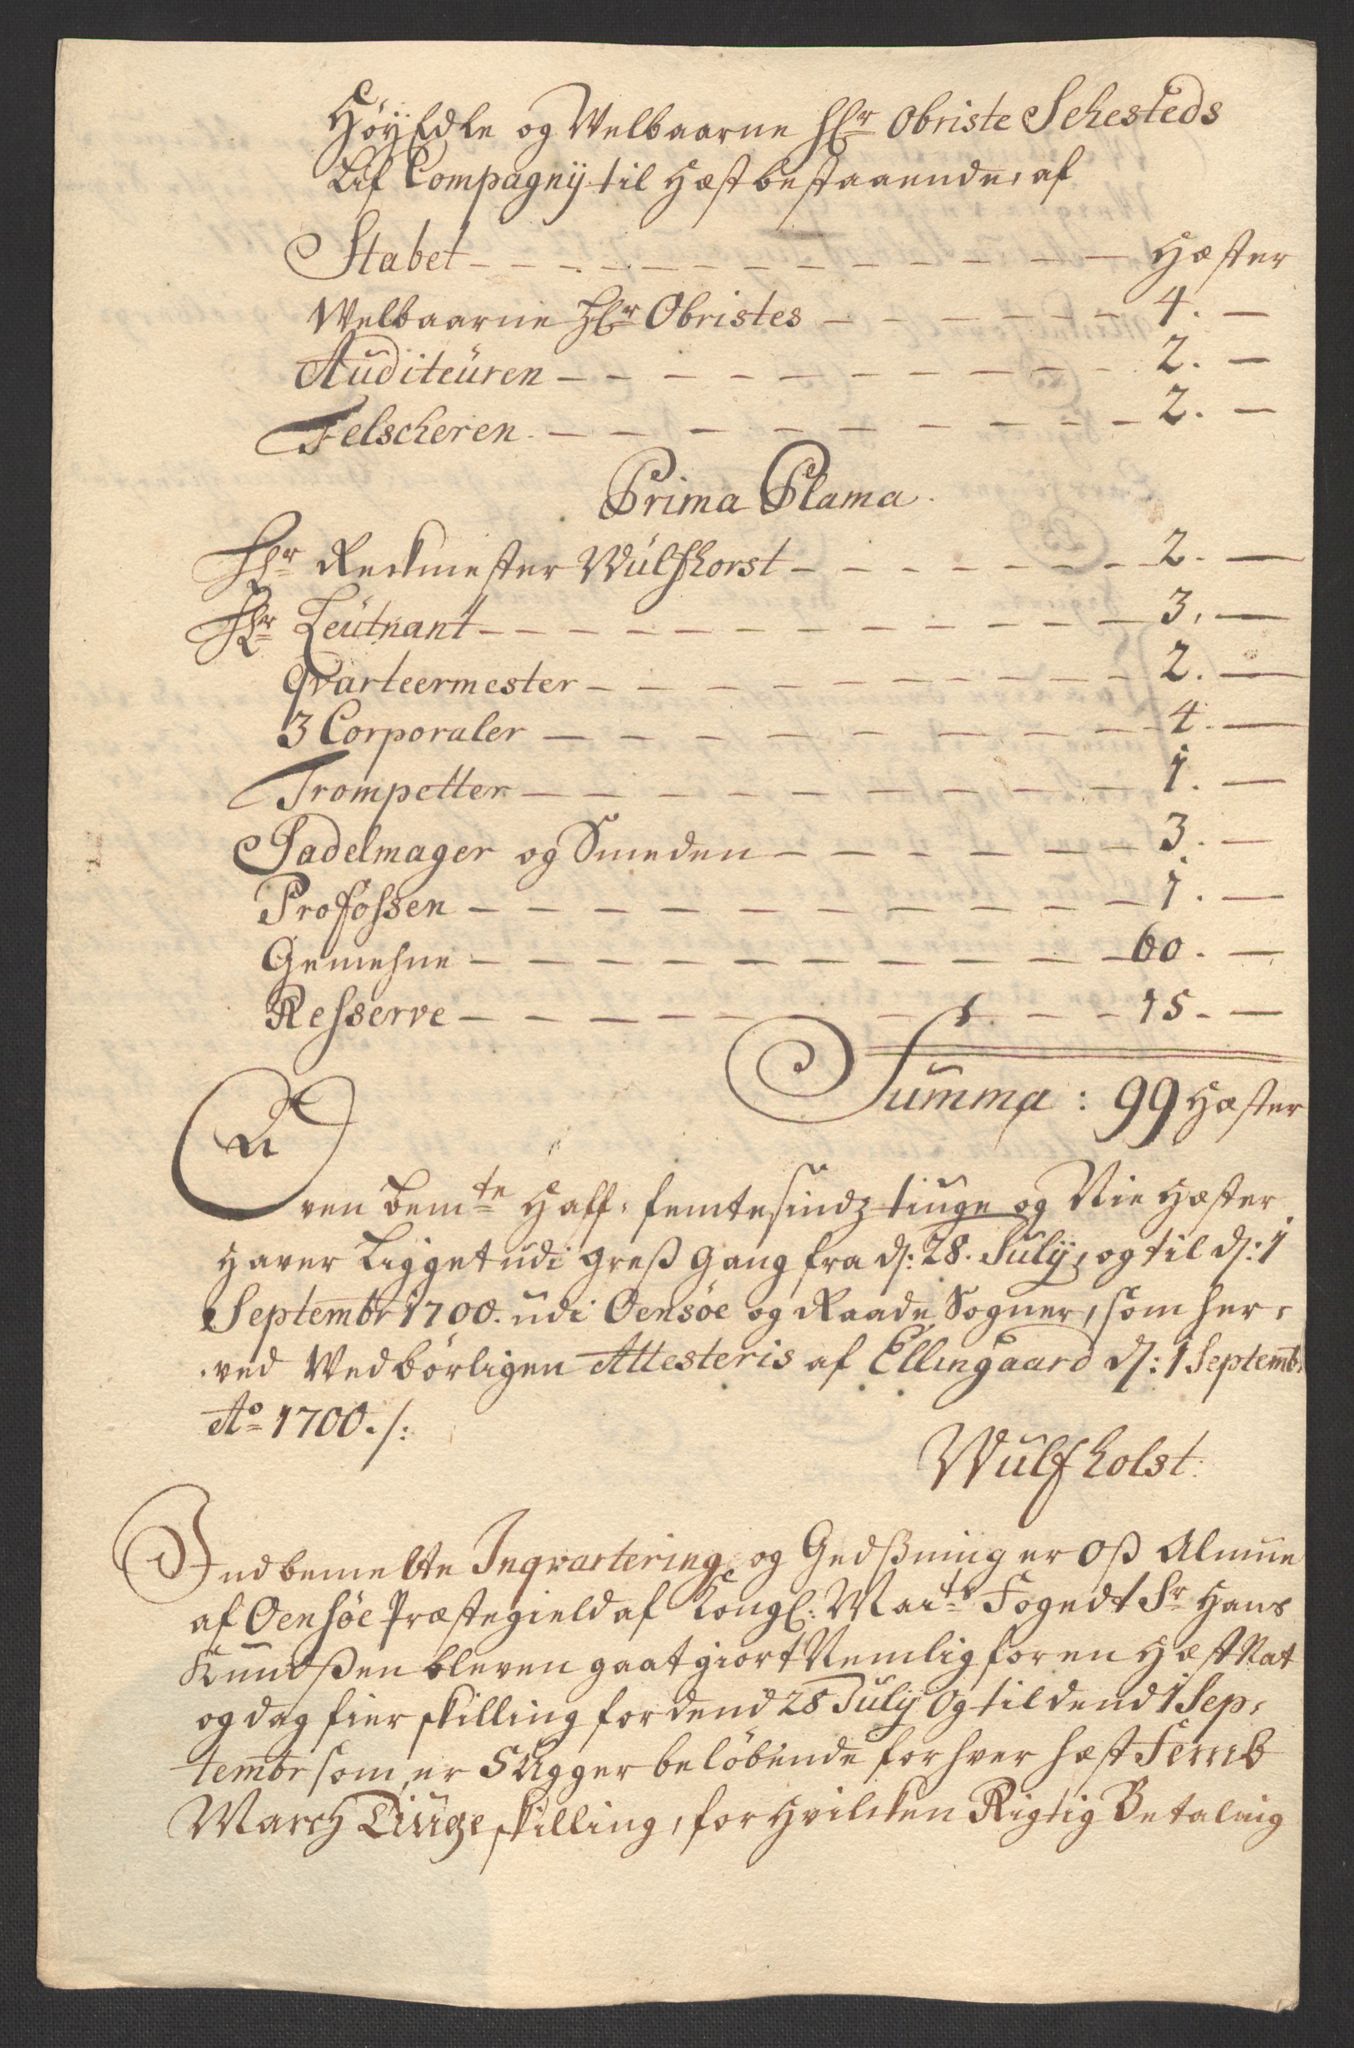 HøyEdle og Velbaarne Hr Obriste Sehesteds
Lif Compagnij til Hæst bestaaende, af
Stabet - Hæster
Welbaarne Hr Obristes - 4. -
Auditeüren - 2. -
Felscheren - 2. -
Prima Plama.
Hr Rectmester Wülfhorst - 2. -
Hr Leütnant - 3. -
Qvarteermester - 2. -
3 Corporaler - 4. -
Trompetter - 1. -
Sadelmager og Smeden - 3. -
Profossen - 1. -
Gemehne - 60. -
Resserve - 15. -
Summa: 99 Hæster
Oven bemte Half, femtesindz tiuge og Nie Hæster
Haver Ligget udi Greß Gang fra d: 28. Julij, og til d: 1
Septembr 1700. udi Oensøe og Raade Sogner, som her-
ved Vedbörligen Attesteris af Ellingaard d: 1 Septemb.
Ao 1700./:
Wülfholst.
Indbemelte Inqvartering og Gedßning er oß Almue
af Oensøe Præstegield af Kongl: Maits Fogedt Sr Hans
Knudßen bleven gaat giort Nemlig for en Hæst Nat
og dag fier skilling for dend 28 Julij og til dend 1 Sep-
tembr som er 5 Ugger beløbende for hver hæst Femb
March Tiuge skilling, for Hvilcken Rigtig Betaling